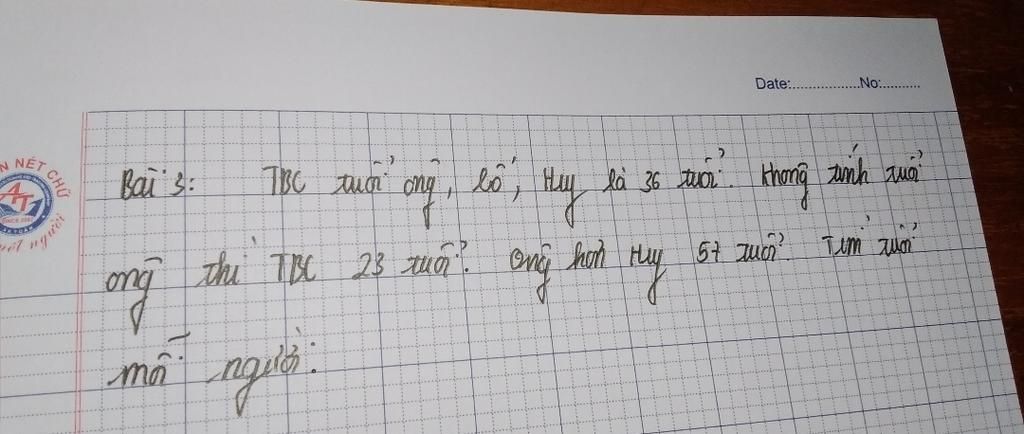 Date:..................No:..........
N NÉT CHỮ
AT
nét người
Bài 3: TBC tuổi ông, bố, Huy là 36 tuổi. Không tính tuổi
ông thì TBC 23 tuổi. Ông hơn Huy 57 tuổi. Tìm tuổi
mỗi người: